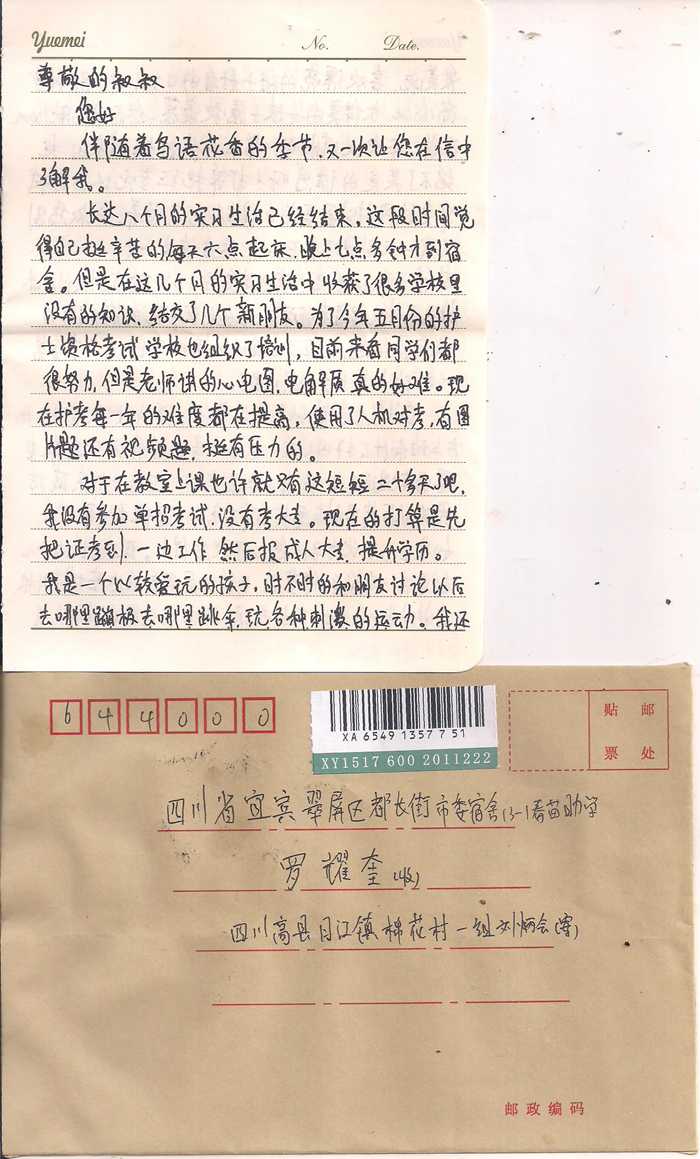 Yuemei No. Date.
尊敬的叔叔
您好
伴随着鸟语花香的季节，又一次让您在信中
了解我。
长达八个月的实习生活已经结束，这段时间觉
得自己挺辛苦的每天六点起床，晚上七点多钟才到宿
舍。但是在这几个月的实习生活中收获了很多学校里
没有的知识，结交了几个新朋友。为了今年五月份的护
士资格考试学校也组织了培训，目前来看同学们都
很努力，但是老师讲的心电图，电解质真的好难。现
在护考每一年的难度都在提高，使用了人机对考，有图
片题还有视频题，挺有压力的。
对于在教室上课也许就只有这短短二个多天了吧，
我没有参加单招考试，没有考大专。现在的打算是先
把证考到，一边工作然后报成人大专，提升学历。
我是一个比较爱玩的孩子，时不时的和朋友讨论以后
去哪里蹦极去哪里跳伞，玩各种刺激的运动。我还
6 4 4 0 0 0
XA 6549 1357 7 51
XY1517 600 2011222
贴 邮
票 处
四川省宜宾翠屏区都长街市委宿舍13-1春苗助学
罗耀奎（收）
四川高县月江镇棉花村一组刘炳会（寄）
邮政编码